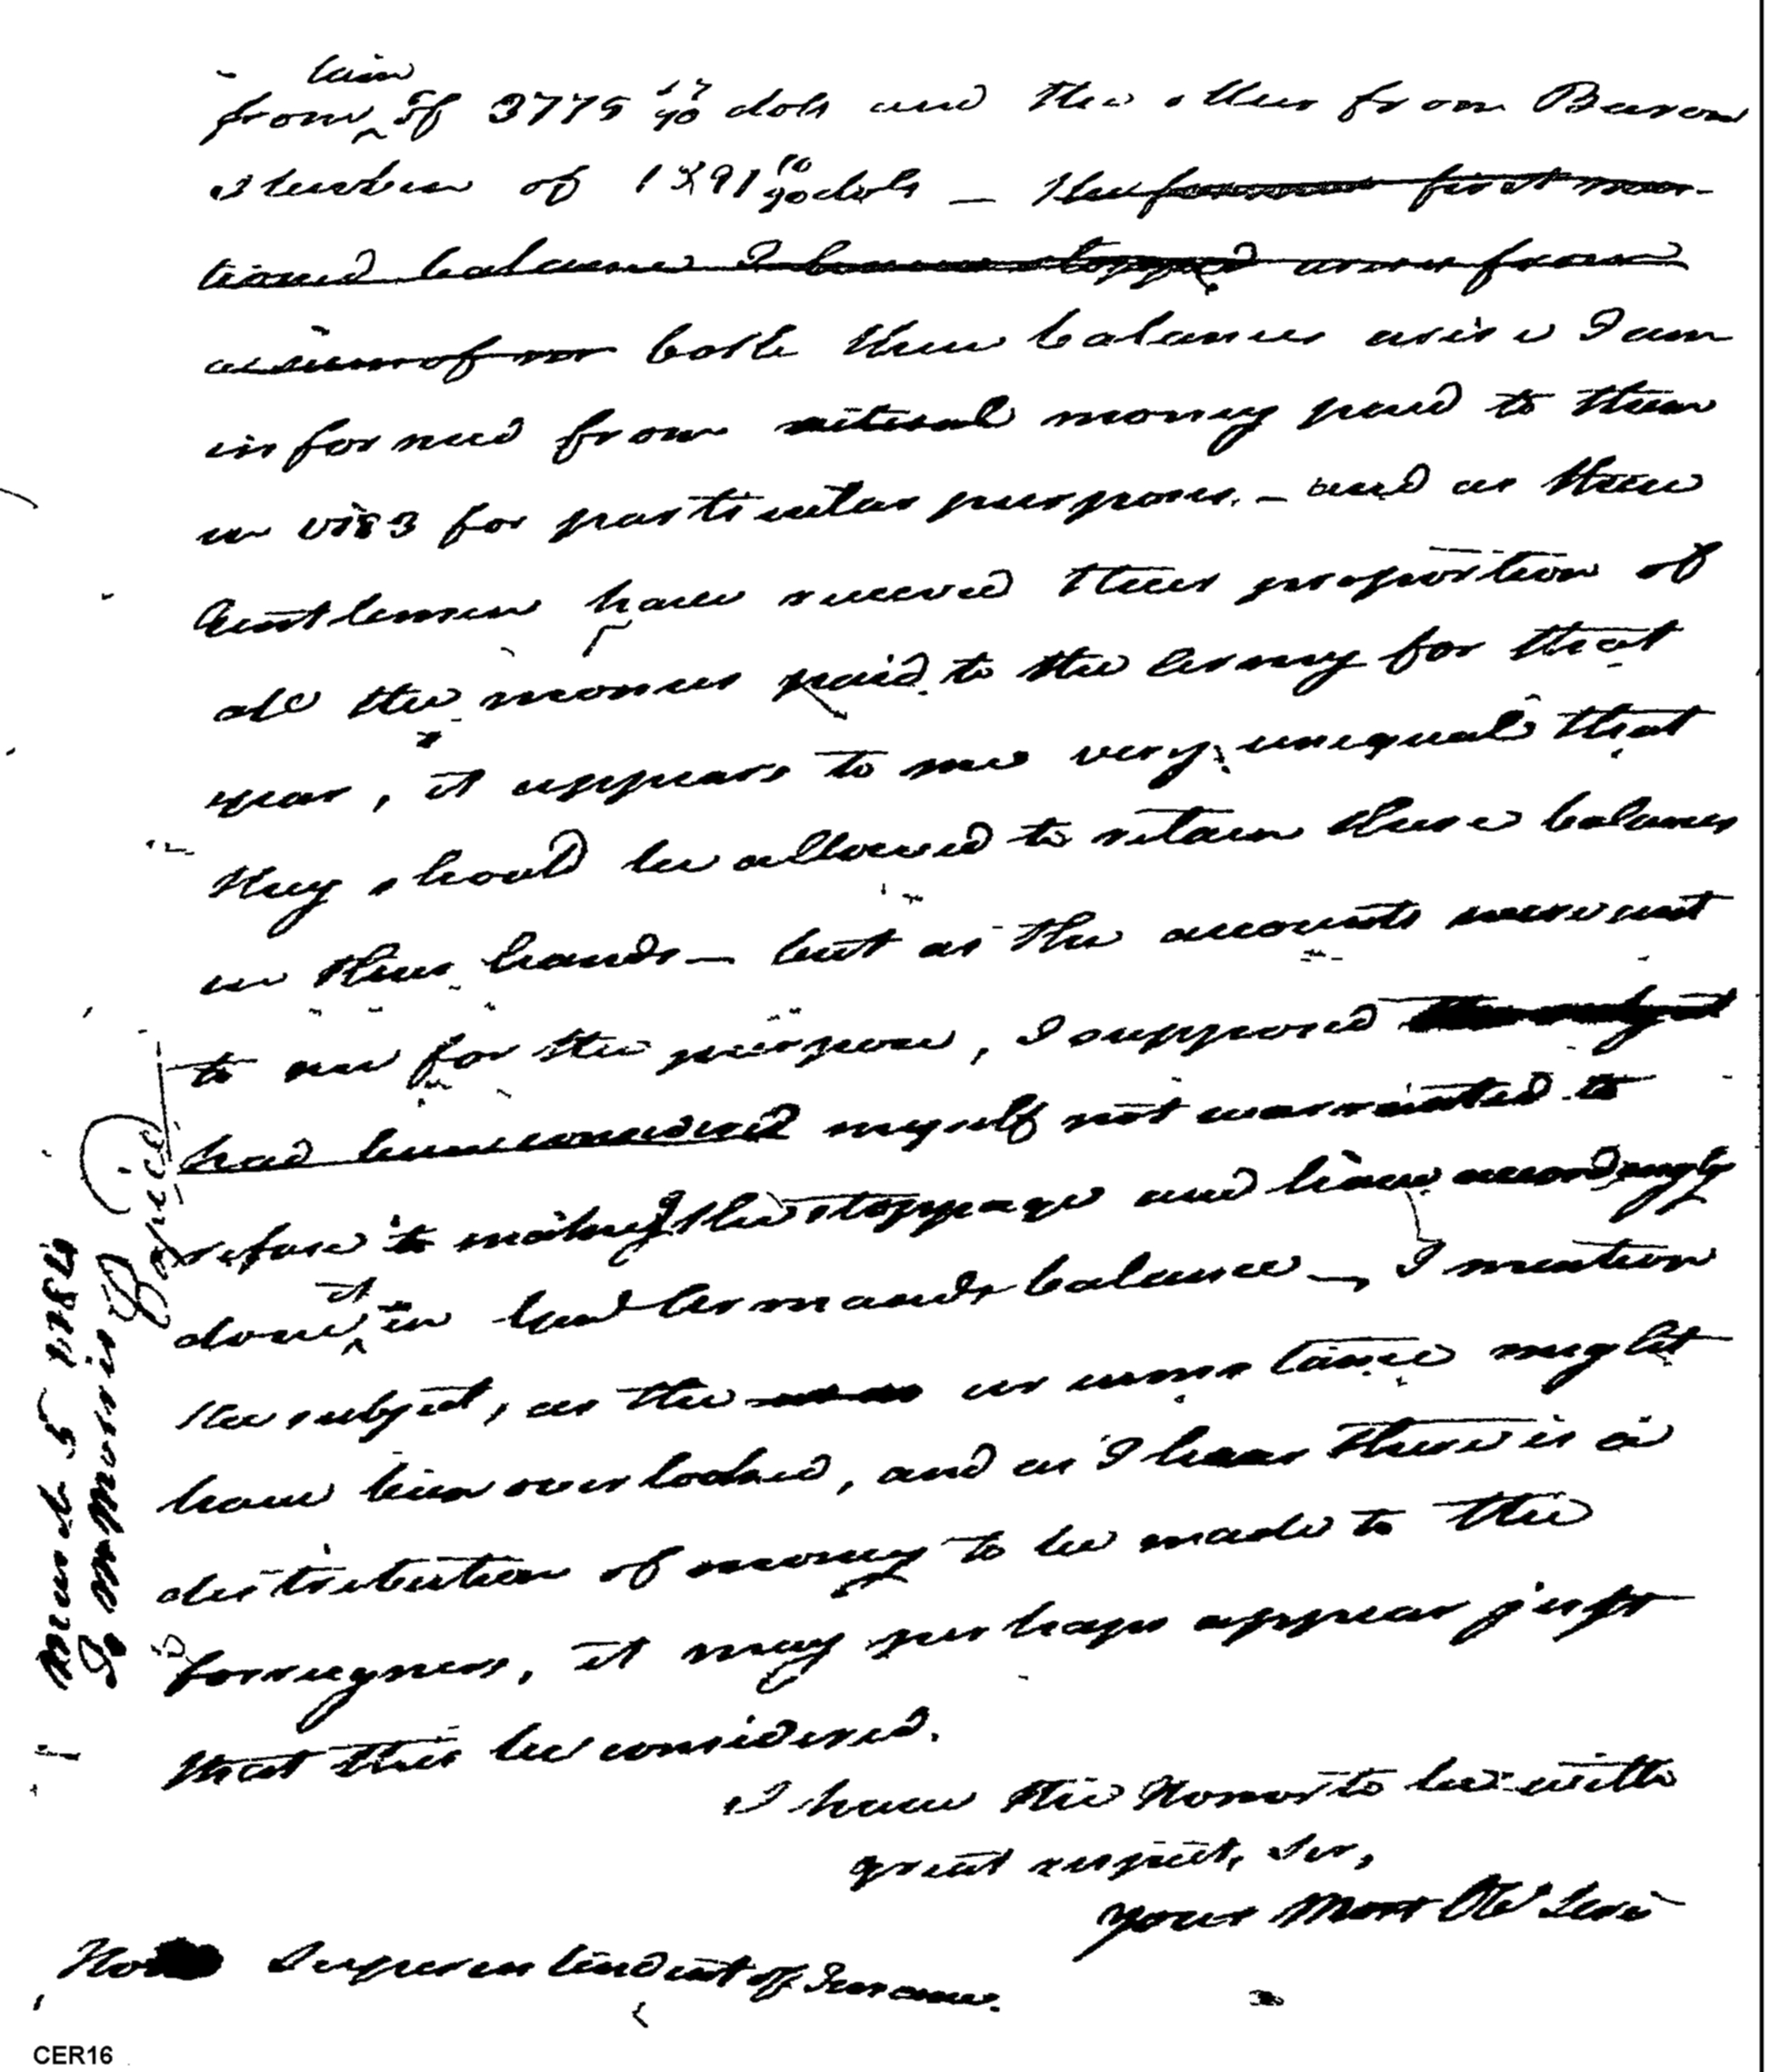 him
from of 3775 17/90 dols and the other from Baron
Steuben of 1391 10/90 dols — The former first men-
tioned balance I have stopped arises from
a sum of both these balances arise I am
informed from actual money paid to them
in 1783 for particular purposes. – and as these
Gentlemen have received their proportion of
all the monies paid to the Army for that
year, it appears to me very unequal that
they should be allowed to retain these balances
in their hands — but as the accounts were sent
to me for the purpose, I supposed the subject
had been considered myself not warranted to
refuse to making the stoppage and have accordingly
done it in Armands balance —, I mention
the subject, as the circumstance might
have been overlooked, and as I hear there is a
distribution of money to be made to the
foreigners, it may perhaps appear just
that this be considered.
I have the Honor to be with
great respect, Sir,
your Most Ob Serv
Hon Superintendent of Finance.
March 5 1784
R Morris Esquire
CER16